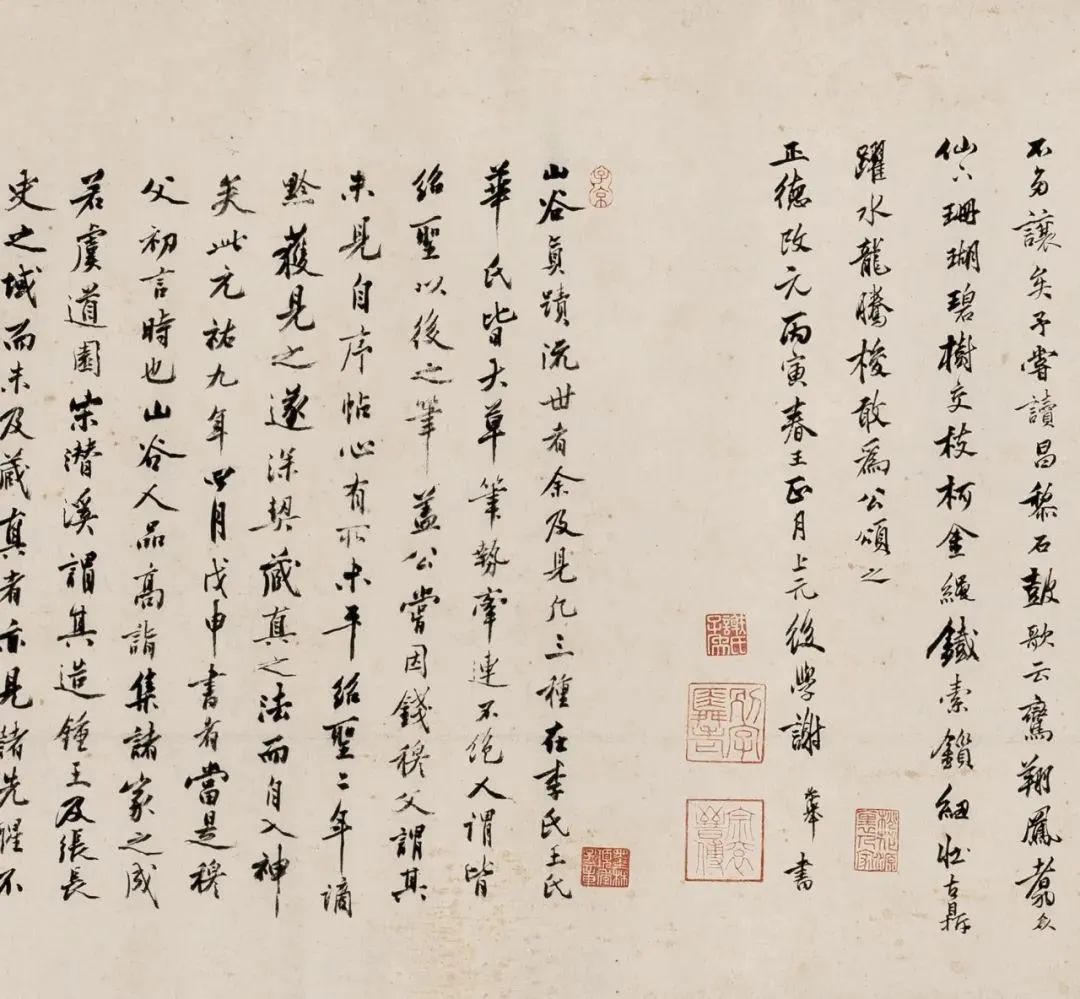 不多讓矣予嘗讀昌黎石鼓歌云鸞翔鳳翥众
仙下珊瑚碧樹交枝柯金繩鐵索鎖紐壯古鼎
躍水龍騰梭敢為公頌之
正德改元丙寅春王正月上元後學謝 書
山谷真蹟流世者余及見凡三種在李氏王氏
華氏皆大草筆勢牽連不絕人謂皆
紹聖以後之筆蓋公嘗因錢穆父謂其
未見自序帖心有所未平紹聖二年謫
黔獲見之遂深契藏真之法而自入神
矣此元祐九年四月戊申書者當是穆
父初言時也山谷人品高詣集諸家之成
若虞道園宋潛溪謂其造鍾王及張長
史之域而未及藏真者亦見諸先